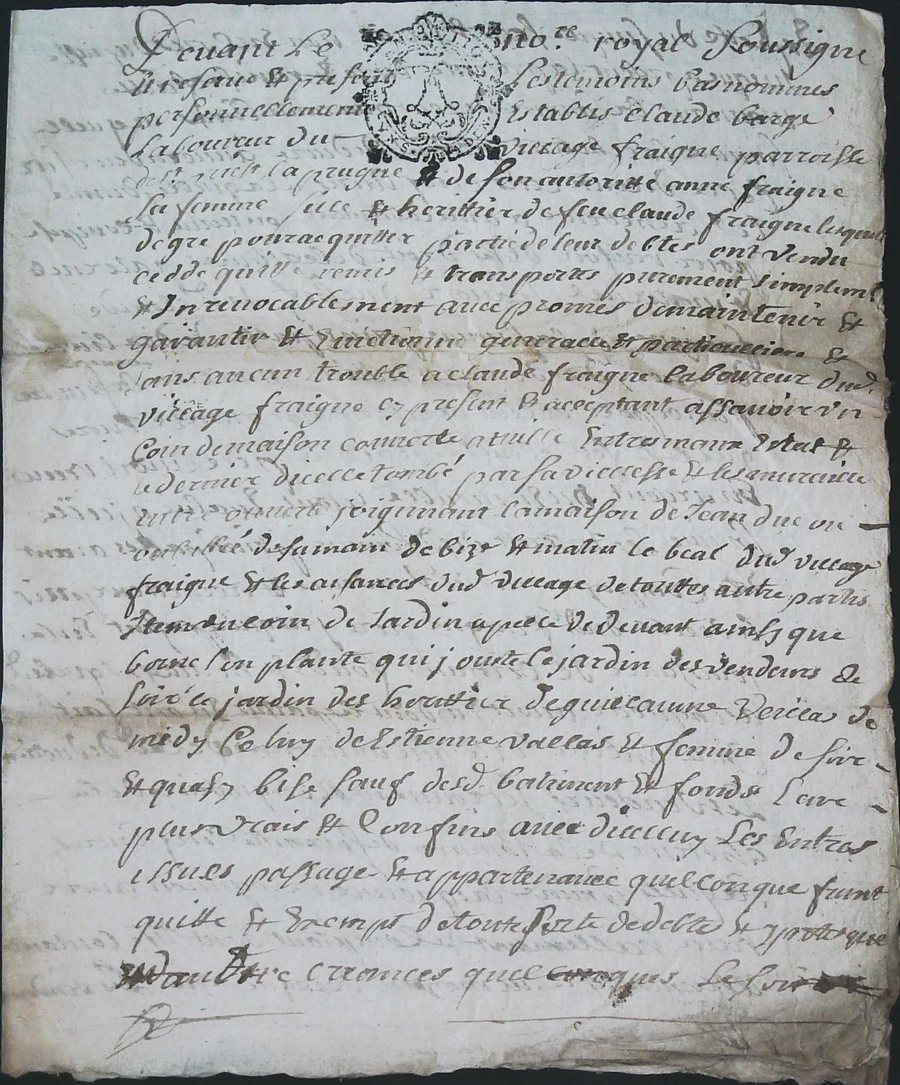 Devant Le no.re royal soussigne
et presant Les temoins bas nommes
personnellement Establis claude barge
Laboureur du village fraigne parroisse
de la prugne & de son autoritté anne fraigne
sa femme & herittier de feu claude fraigne lesquels
de gre pour acquitter partie de leur debtes ont vendu
cedde quitté remis & transportes purement simplemt
& Inrevocablement avec promes de maintenir &
garantir & generalle & particulliere &
sans aucun trouble a claude fraigne laboureur dud.
village fraigne cy present & acceptant assavoir un
Coin de maison couverte a tuille Entre maux Estat &
le dernier dicelle tombé par sa viellesse & les muraille
entre ouverte joignant la maison de Jean duc ou
de sa main de bize & matin le beal dud village
fraigne & les aisances dud village de touttes autre partis
Item un coin de Jardin apelle de devant ainsy que
borne lon plante qui jouste le jardin des vendeurs de
soir le jardin des herittier de guillaume Verllas de
medy Celuy de Estienne vallas & femme de soir
& quasy bise sauf desd. batiment & fonds Leur
plus vrais & Confins avec dicelluy Les Entres
issues passage & appartenance quelconque franc
quitte & Exempt de toutte sorte de debte & ypoteque
& dautre creances quelconques Le soir